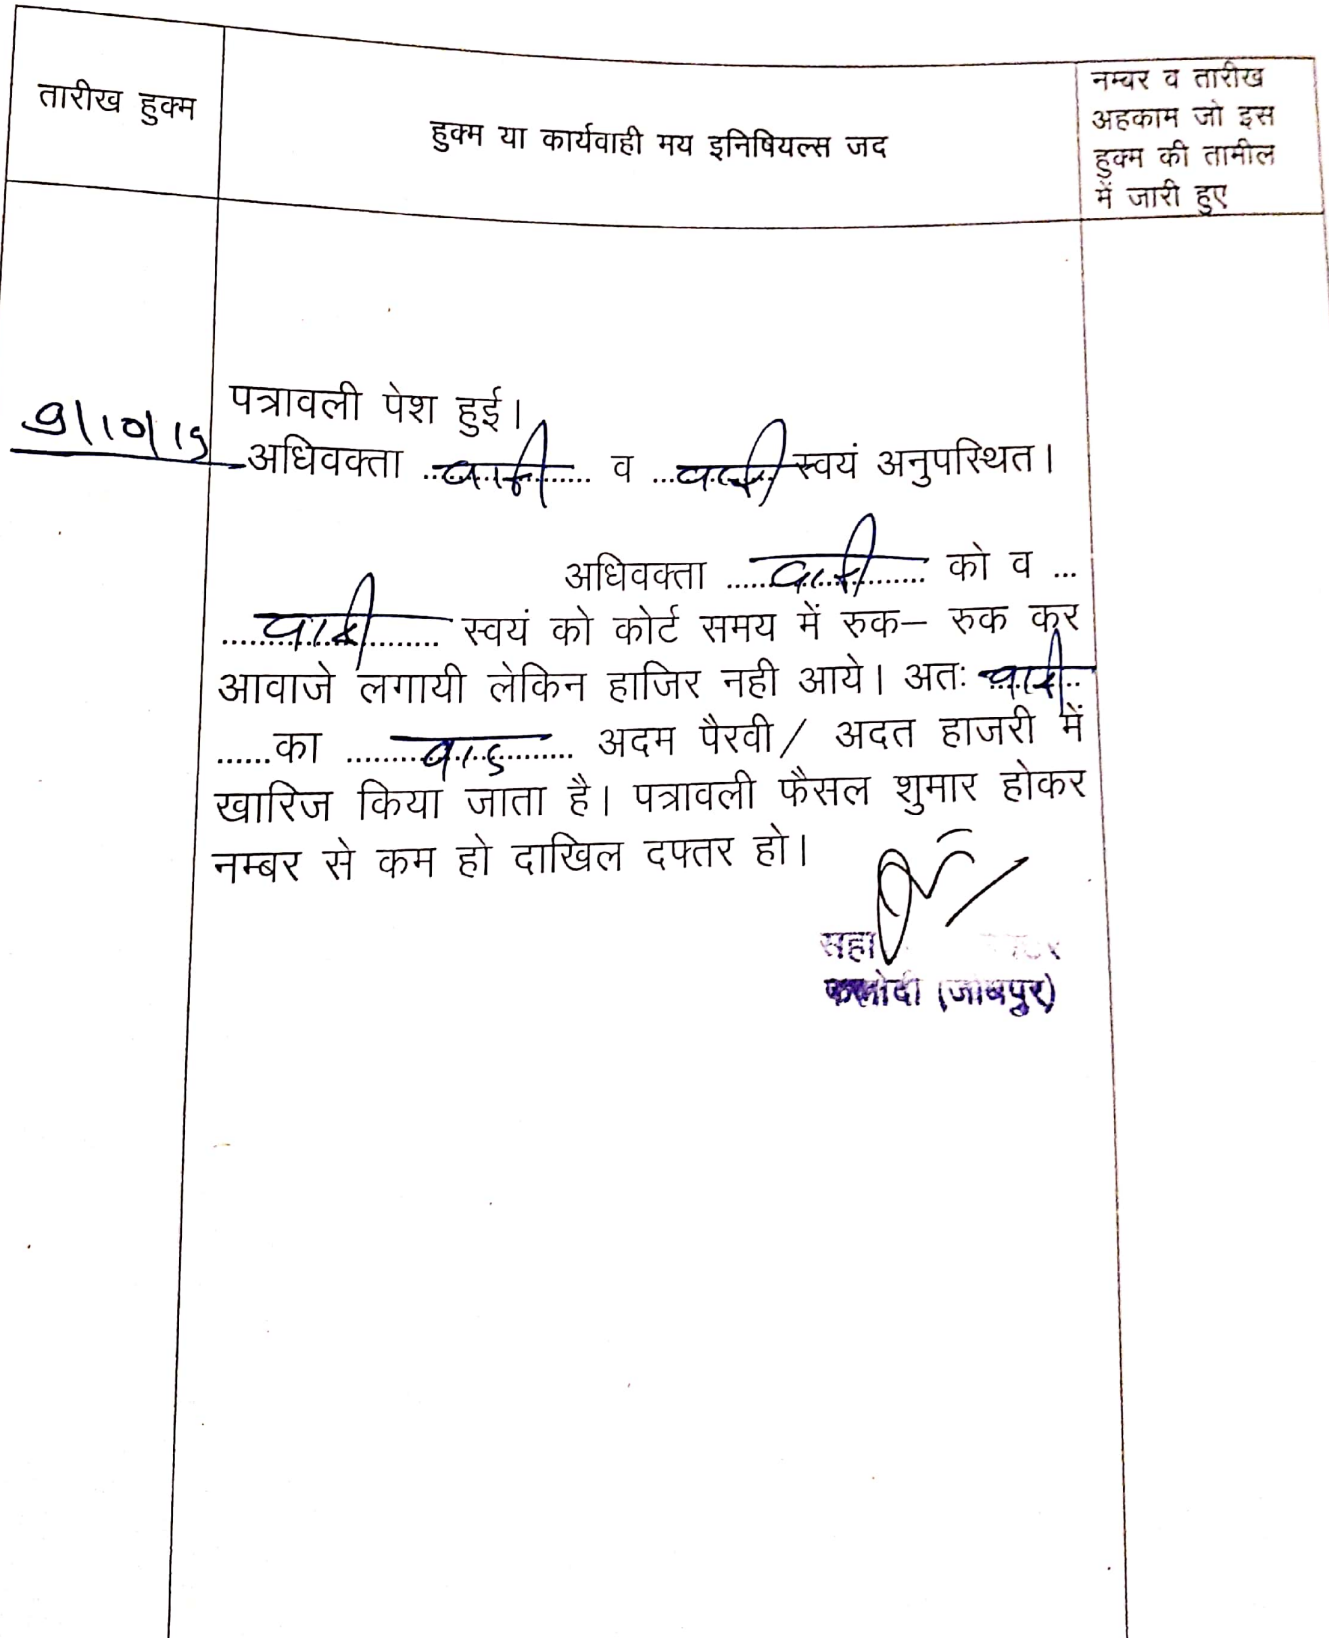 तारीख हुक्म
हुक्म या कार्यवाही मय इनिषियल्स जद
नम्बर व तारीख
अहकाम जो इस
हुक्म की तामील
में जारी हुए
पत्रावली पेश हुई।
9/10/15
अधिवक्ता ..वादी.. व ...वादी स्वयं अनुपस्थित।
अधिवक्ता ......वादी...... को व ...
......वादी...... स्वयं को कोर्ट समय में रुक– रुक कर
आवाजे लगायी लेकिन हाजिर नही आये। अतः वादी..
......का ......वाद...... अदम पैरवी/ अदत हाजरी में
खारिज किया जाता है। पत्रावली फैसल शुमार होकर
नम्बर से कम हो दाखिल दफ्तर हो।
सहा
फलोदी (जोधपुर)